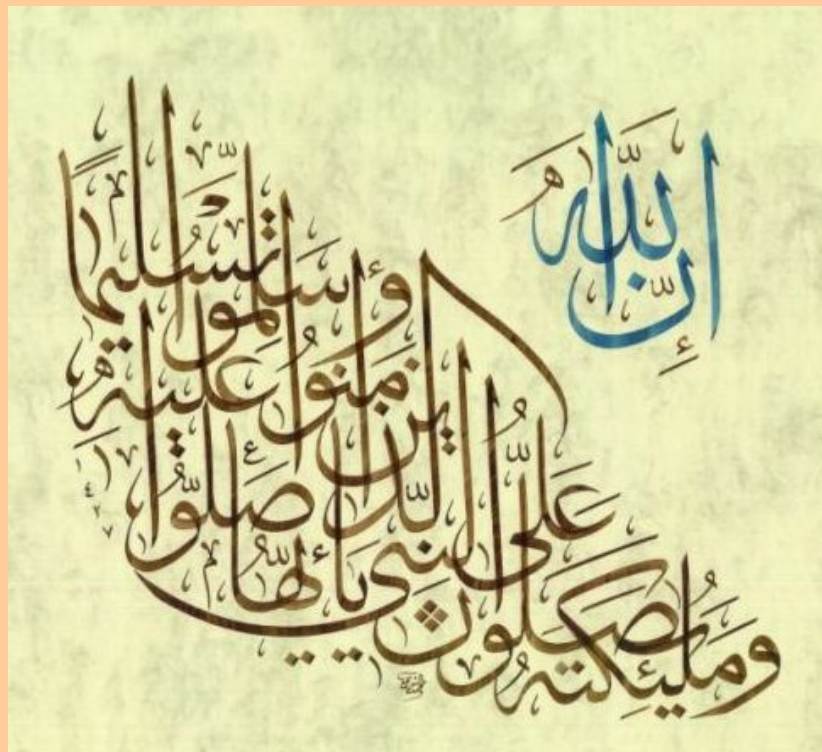 إِنَّ اللَّهَ
وَمَلَٰئِكَتَهُ يُصَلُّونَ
عَلَى النَّبِيِّ يَٰأَيُّهَا
الَّذِينَ آمَنُوا صَلُّوا عَلَيْهِ
وَسَلِّمُوا تَسْلِيمًا
١٤٢٧